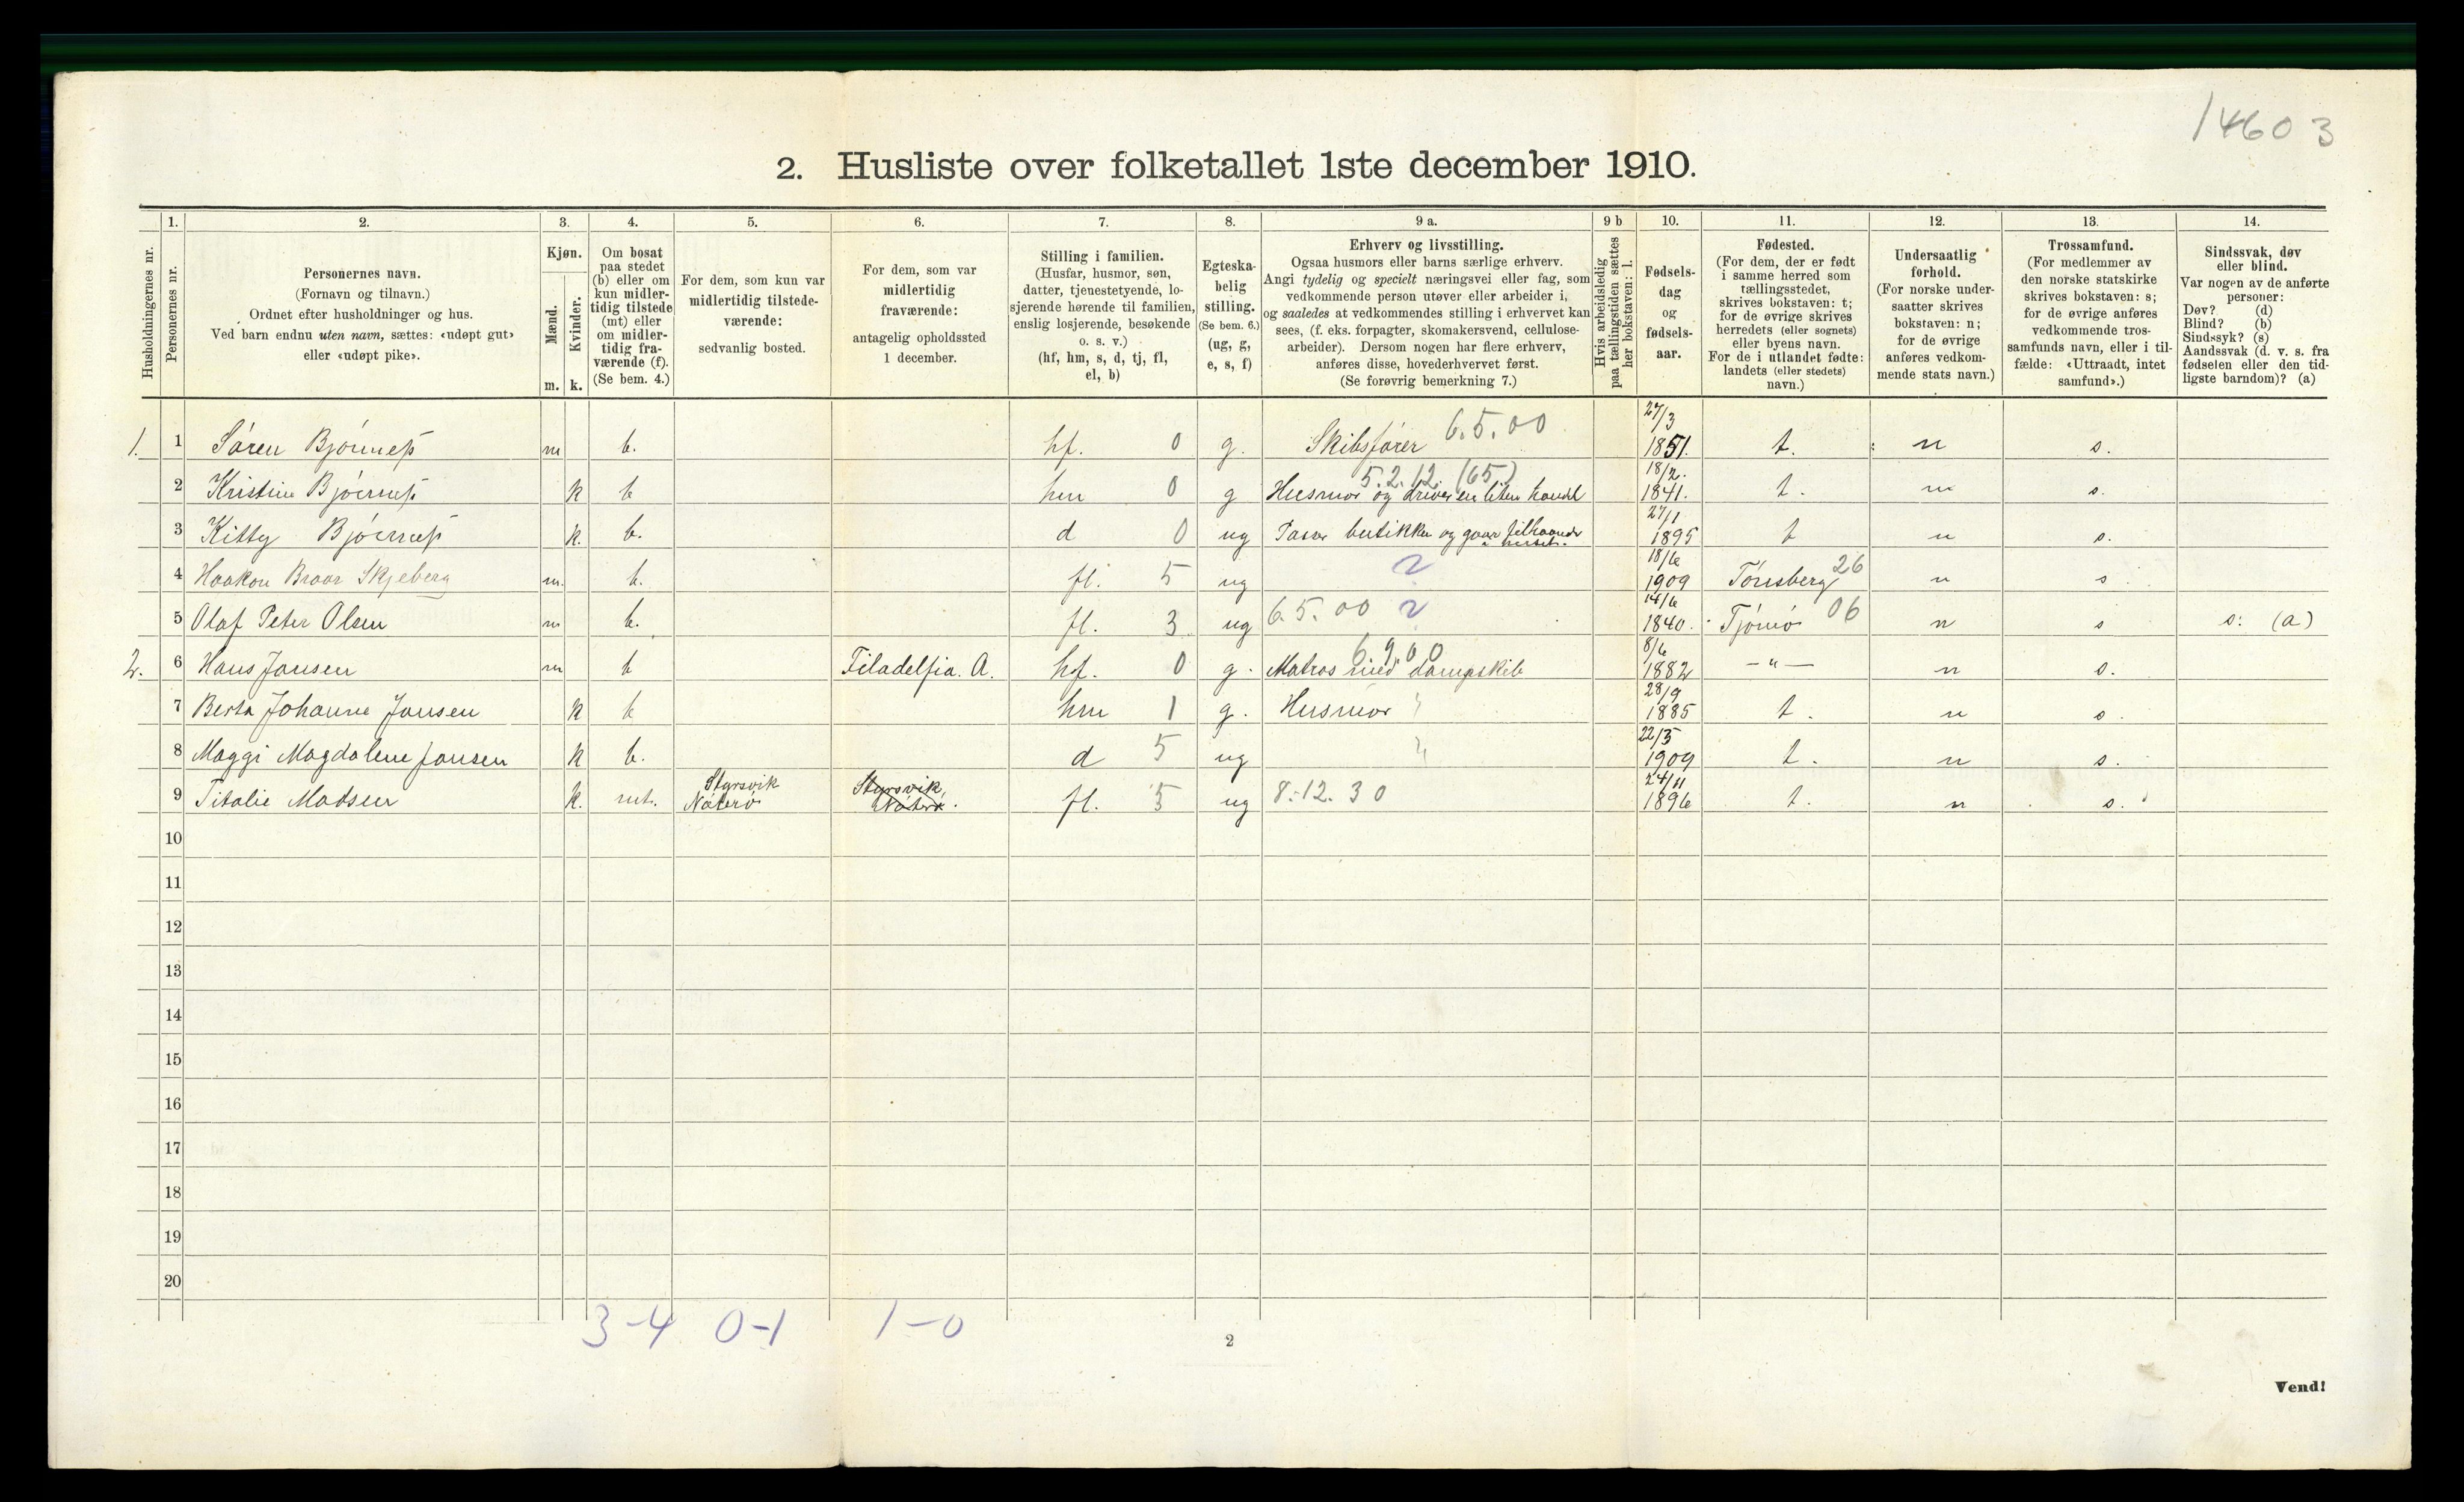 14603
2. Husliste over folketallet 1ste december 1910.
Husholdningernes nr.
1.
Personernes nr.
2.
Personernes navn.
(Fornavn og tilnavn.)
Ordnet efter husholdninger og hus.
Ved barn endnu uten navn, sættes: «udøpt gut»
eller «udøpt pike».
3.
Kjøn.
Mænd.
Kvinder.
m. k.
4.
Om bosat
paa stedet
(b) eller om
kun midler-
tidig tilstede
(mt) eller
om midler-
tidig fra-
værende (f).
(Se bem. 4.)
5.
For dem, som kun var
midlertidig tilstede-
værende:
sedvanlig bosted.
6.
For dem, som var
midlertidig
fraværende:
antagelig opholdssted
1 december.
7.
Stilling i familien.
(Husfar, husmor, søn,
datter, tjenestetyende, lo-
sjerende hørende til familien,
enslig losjerende, besøkende
o. s. v.)
(hf, hm, s, d, tj, fl,
el, b)
8.
Egteska-
belig
stilling.
(Se bem. 6.)
(ug, g,
e, s, f)
9 a.
Erhverv og livsstilling.
Ogsaa husmors eller barns særlige erhverv.
Angi tydelig og specielt næringsvei eller fag, som
vedkommende person utøver eller arbeider i,
og saaledes at vedkommendes stilling i erhvervet kan
sees, (f. eks. forpagter, skomakersvend, cellulose-
arbeider). Dersom nogen har flere erhverv,
anføres disse, hovederhvervet først.
(Se forøvrig bemerkning 7.)
9 b
Hvis arbeidsledig
paa tællingstiden sættes
her bokstaven: l.
10.
Fødsels-
dag
og
fødsels-
aar.
11.
Fødested.
(For dem, der er født
i samme herred som
tællingsstedet,
skrives bokstaven: t;
for de øvrige skrives
herredets (eller sognets)
eller byens navn.
For de i utlandet fødte:
landets (eller stedets)
navn.)
12.
Undersaatlig
forhold.
(For norske under-
saatter skrives
bokstaven: n;
for de øvrige
anføres vedkom-
mende stats navn.)
13.
Trossamfund.
(For medlemmer av
den norske statskirke
skrives bokstaven: s;
for de øvrige anføres
vedkommende tros-
samfunds navn, eller i til-
fælde: «Uttraadt, intet
samfund».)
14.
Sindssvak, døv
eller blind.
Var nogen av de anførte
personer:
Døv? (d)
Blind? (b)
Sindssyk? (s)
Aandssvak (d. v. s. fra
fødselen eller den tid-
ligste barndom)? (a)
1. 1 Søren Bjørness m b. hf. 0 g. Skibsfører 6.5.00 27/3 1851. t. n s.
2 Kristine Bjørness k b hm 0 g Husmor og driver en liten handel 5.2.12 (65) 18/2. 1841. t. n s.
3 Kitty Bjørness k. b. d 0 ug Passer butikken og gaar tilhaande i huset. 27/1 1895 t n s.
4 Haakon Skjeberg m. b. fl. 5 ug 18/6 1909 Tønsberg 26 n s.
5 Olaf Peter Olsen m b. fl. 3 ug 6.5.00 14/6 1840. Tjømø 06 n s s: (a)
2. 6 Hans Jansen m b Filadelfia. A. hf. 0 g. Matros med dampskib 6.9.00 8/6 1882 —"— n s.
7 Berta Johanne Jansen k b hm 1 g. Husmor 28/9 1885 t. n s.
8 Maggi Magdalene Jansen k b. d 5 ug 22/5 1909 t. n s.
9 Titalie Madsen k. mt. Styrsvik Nøterø Styrsvik, Nøterø. fl. 5 ug 8.12.30 24/11 1896 t. n s.
10
11
12
13
14
15
16
17
18
19
20
3-4 0-1 1-0
2
Vend!